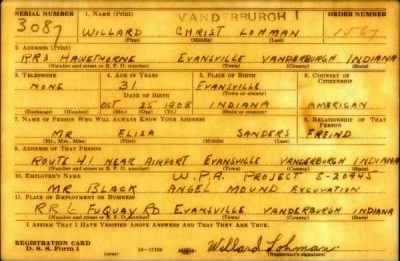 SERIAL NUMBER 1. NAME (Print) ORDER NUMBER
VANDERBURGH 1
3087 WILLARD CHRIST LOHMAN 1567
(First) (Middle) (Last)
2. ADDRESS (Print)
RR3 HAWTHORNE EVANSVILLE VANDERBURGH INDIANA
(Number and street or R. F. D. number) (Town) (County) (State)
3. TELEPHONE 4. AGE IN YEARS 5. PLACE OF BIRTH 6. COUNTRY OF CITIZENSHIP
NONE 31 EVANSVILLE
DATE OF BIRTH (Town or county)
OCT 25 1908 INDIANA AMERICAN
(Exchange) (Number) (Mo.) (Day) (Yr.) (State or country)
7. NAME OF PERSON WHO WILL ALWAYS KNOW YOUR ADDRESS 8. RELATIONSHIP OF THAT PERSON
MR ELISA SANDERS FREIND
(Mr., Mrs., Miss) (First) (Middle) (Last)
9. ADDRESS OF THAT PERSON
ROUTE 41 NEAR AIRPORT EVANSVILLE VANDERBURGH INDIANA
(Number and street or R. F. D. number) (Town) (County) (State)
10. EMPLOYER'S NAME W.P.A. PROJECT 5-20945
MR BLACK ANGEL MOUND EXCUVATION
11. PLACE OF EMPLOYMENT OR BUSINESS
RR6 FUQUAY RD EVANSVILLE VANDERBURGH INDIANA
(Number and street or R. F. D. number) (Town) (County) (State)
I AFFIRM THAT I HAVE VERIFIED ABOVE ANSWERS AND THAT THEY ARE TRUE.
REGISTRATION CARD
D. S. S. Form 1 (over) Willard Lohman
(Registrant's signature)